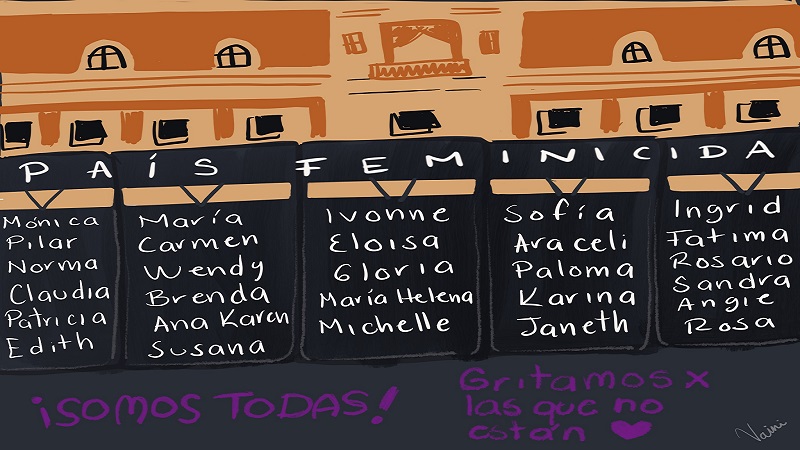 PAÍS FEMINICIDA
Mónica
Pilar
Norma
Claudia
Patricia
Edith
María
Carmen
Wendy
Brenda
Ana Karen
Susana
Ivonne
Eloisa
Gloria
María Helena
Michelle
Sofía
Araceli
Paloma
Karina
Janeth
Ingrid
Fatima
Rosario
Sandra
Angie
Rosa
¡SOMOS TODAS!
Gritamos x
las que no
están
Vaini